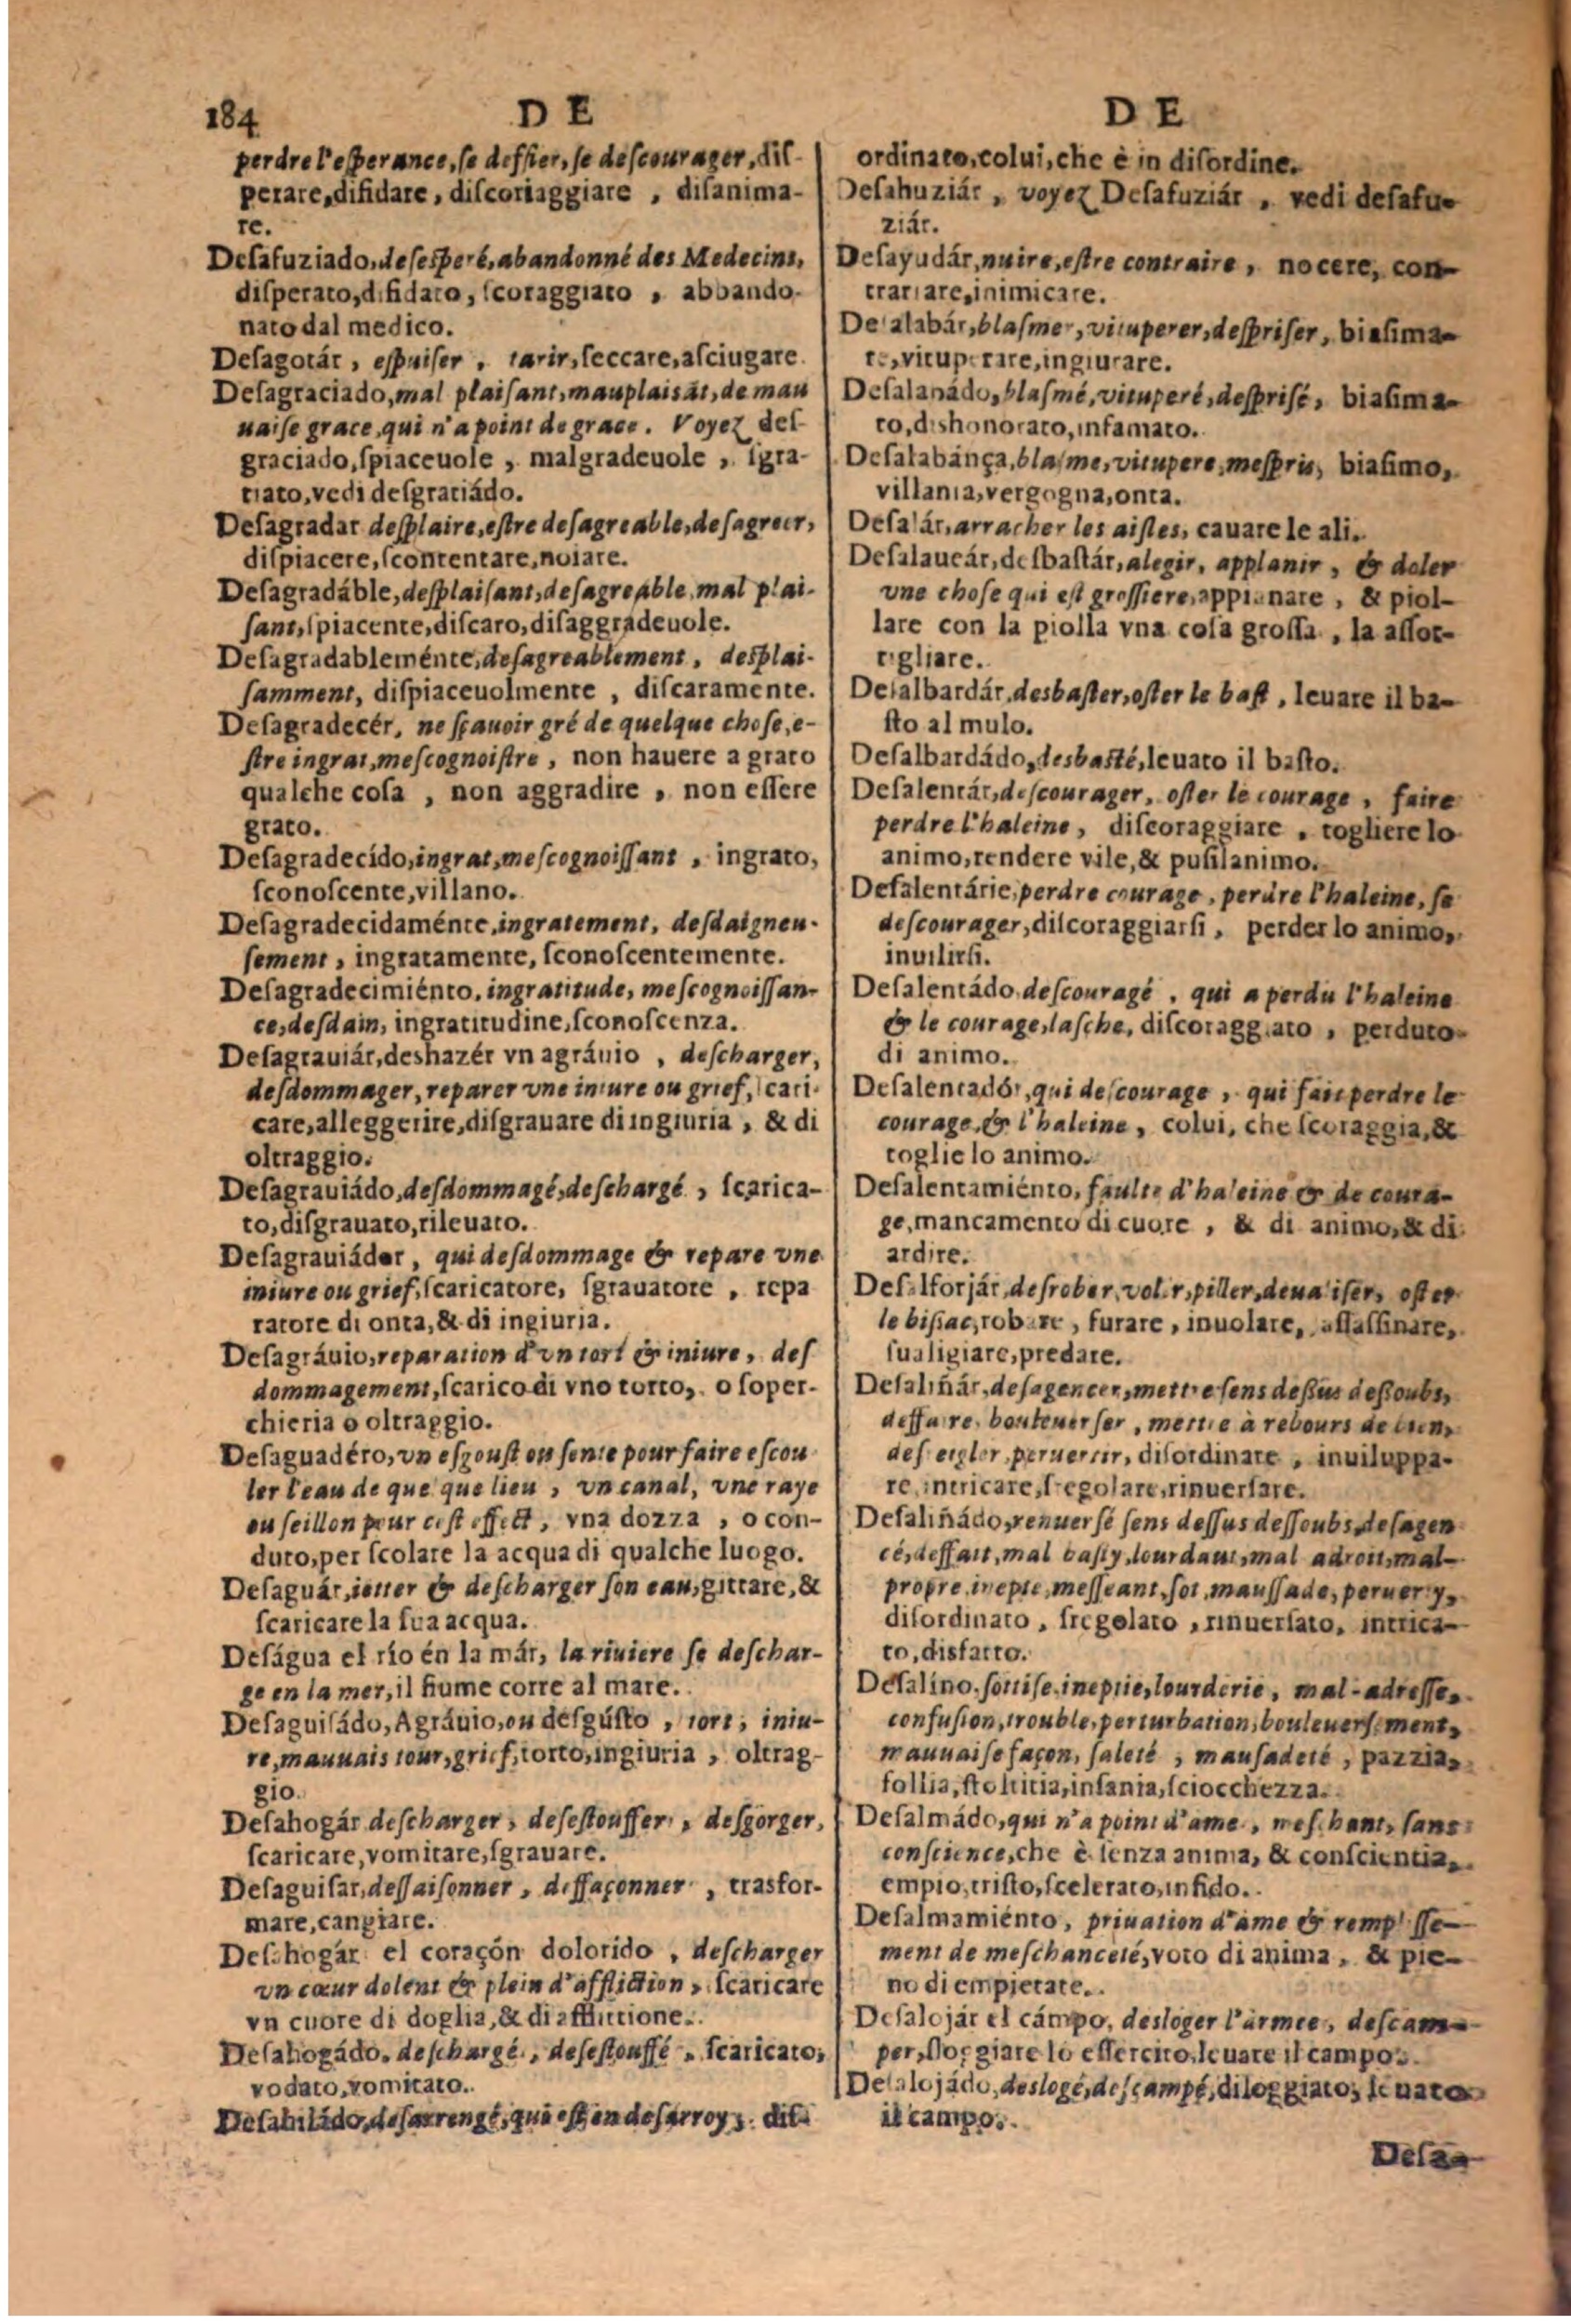 184 DE
perdre l'esperance, se deffier, se descourager, diſ-
perare, difidare, diſcoriaggiare, diſanima-
re.
Deſafuziado, deſeſperé, abandonné des Medecins,
diſperato, difidato, ſcoraggiato, abbando-
nato dal medico.
Deſagotár, eſpuiſer, tarir, ſeccare, aſciugare
Deſagraciado, mal plaiſant, mauplaisāt, de mau
uaiſe grace, qui n'a point de grace. Voyez deſ-
graciado, ſpiaceuole, malgradeuole, ſgra-
tiato, vedi deſgratiádo.
Deſagradar deſplaire, eſtre deſagreable, deſagreer,
diſpiacere, ſcontentare, noiare.
Deſagradáble, deſplaiſant, deſagreable, mal plai-
ſant, ſpiacente, diſcaro, diſaggradeuole.
Deſagradableménte, deſagreablement, deſplai-
ſamment, diſpiaceuolmente, diſcaramente.
Deſagradecér, ne ſçauoir gré de quelque choſe, e-
ſtre ingrat, meſcognoiſtre, non hauere a grato
qualche coſa, non aggradire, non eſſere
grato.
Deſagradecído, ingrat, meſcognoiſſant, ingrato,
ſconoſcente, villano.
Deſagradecidaménte, ingratement, deſdaigneu-
ſement, ingratamente, ſconoſcentemente.
Deſagradecimiénto, ingratitude, meſcognoiſſan-
ce, deſdain, ingratitudine, ſconoſcenza.
Deſagrauiár, deshazér vn agráuio, deſcharger,
deſdommager, reparer vne iniure ou grief, ſcari-
care, alleggerire, diſgrauare di ingiuria, & di
oltraggio.
Deſagrauiádo, deſdommagé, deſchargé, ſcarica-
to, diſgrauato, rileuato.
Deſagrauiádor, qui deſdommage & repare vne
iniure ou grief, ſcaricatore, ſgrauatore, repa
ratore di onta, & di ingiuria.
Deſagráuio, reparation d'vn tort & iniure, deſ
dommagement, ſcarico di vno torto, o ſoper-
chieria o oltraggio.
Deſaguadéro, vn eſgouſt ou ſente pour faire eſcou
ler l'eau de quelque lieu, vn canal, vne raye
ou ſeillon pour ceſt effect, vna dozza, o con-
duto, per ſcolare la acqua di qualche luogo.
Deſaguár, ietter & deſcharger ſon eau, gittare, &
ſcaricare la ſua acqua.
Deſágua el río én la már, la riuiere ſe deſchar-
ge en la mer, il fiume corre al mare.
Deſaguiſádo, Agráuio, ou deſgúſto, tort, iniu-
re, mauuais tour, grief, torto, ingiuria, oltrag-
gio.
Deſahogár deſcharger, deſeſtouffer, deſgorger,
ſcaricare, vomitare, ſgrauare.
Deſaguiſar, deſſaiſonner, deffaçonner, trasfor-
mare, cangiare.
Deſahogár el coraçón dolorido, deſcharger
vn cœur dolent & plein d'affliction, ſcaricare
vn cuore di doglia, & di afflittione.
Deſahogádo, deſchargé, deſeſtouffé, ſcaricato,
vodato, vomitato.
Deſahiládo, deſarrengé, qui eſt en deſarroy, diſ-
DE
ordinato, colui, che è in diſordine.
Deſahuziár, voyez Deſafuziár, vedi deſafu-
ziár.
Deſayudár, nuire, eſtre contraire, nocere, con-
trariare, inimicare.
Deſalabár, blaſmer, vituperer, deſpriſer, biaſima-
re, vituperare, ingiurare.
Deſalabádo, blaſmé, vituperé, deſpriſé, biaſima-
to, dishonorato, infamato.
Deſalabánça, blaſme, vitupere, meſpris, biaſimo,
villania, vergogna, onta.
Deſalár, arracher les aiſles, cauare le ali.
Deſalaueár, desbaſtár, alegir, applanir, & doler
vne choſe qui eſt groſſiere, appianare, & piol-
lare con la piolla vna coſa groſſa, la aſſot-
tigliare.
Deſalbardár, desbaſter, oſter le baſt, leuare il ba-
ſto al mulo.
Deſalbardádo, desbaſté, leuato il baſto.
Deſalentár, deſcourager, oſter le courage, faire
perdre l'haleine, diſcoraggiare, togliere lo
animo, rendere vile, & puſilanimo.
Deſalentárſe, perdre courage, perdre l'haleine, ſe
deſcourager, diſcoraggiarſi, perder lo animo,
inuilirſi.
Deſalentádo, deſcouragé, qui a perdu l'haleine
& le courage, laſche, diſcoraggiato, perduto
di animo.
Deſalentadór, qui deſcourage, qui fait perdre le
courage, & l'haleine, colui, che ſcoraggia, &
toglie lo animo.
Deſalentamiénto, faulte d'haleine & de coura-
ge, mancamento di cuore, & di animo, & di
ardire.
Deſalforjár, deſrober, voler, piller, deualiſer, oſter
le biſſac, robare, furare, inuolare, aſſaſſinare,
ſualigiare, predare.
Deſaliñár, deſagencer, mettre ſens deſſus deſſoubs,
deffaire, bouleuerſer, mettre à rebours de bien,
deſreigler, peruertir, diſordinare, inuiluppa-
re, intricare, ſregolare, rinuerſare.
Deſaliñádo, renuerſé ſens deſſus deſſoubs, deſagen
cé, deffait, mal baſty, lourdaut, mal adroit, mal-
propre, inepte, meſſeant, ſot, mauſſade, peruerty,
diſordinato, ſregolato, rinuerſato, intrica-
to, disfatto.
Deſalíno, ſottiſe, ineptie, lourderie, mal-adreſſe,
confuſion, trouble, perturbation, bouleuerſement,
mauuaiſe façon, ſaleté, mauſadeté, pazzia,
follia, ſtoltitia, inſania, ſciocchezza.
Deſalmádo, qui n'a point d'ame, meſchant, ſans
conſcience, che è ſenza anima, & conſcientia,
empio, triſto, ſcelerato, infido.
Deſalmamiénto, priuation d'ame & rempliſſe-
ment de meſchanceté, voto di anima, & pie-
no di empietate.
Deſalojár el cámpo, desloger l'armee, deſcam-
per, ſloggiare lo eſſercito, leuare il campo.
Deſalojádo, deslogé, deſcampé, diloggiato, leuato
il campo.
Deſaa-